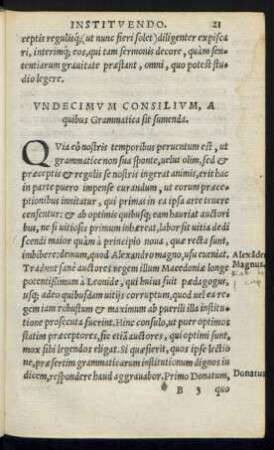 INSTITVENDO. 21
ceptis regulisq́;(ut nunc fieri solet) diligenter expisca
ri, interimq́; eos, qui tam sermonis decore, quàm sen-
tentiarum grauitate præstant, omni, quo potest stu
dio legere.
VNDECIMVM CONSILIVM, A
quibus Grammatica sit sumenda.
QVia eò nostris temporibus peruentum est, ut
grammatice non sua sponte, uelut olim, sed &
præceptis & regulis se nostris ingerat animis, erit hac
in parte puero impense curandum, ut eorum præce-
ptionibus innitatur, qui primas in ea ipsa arte tenere
censentur: & ab optimis quibusq; eam hauriat auctori
bus, ne si uitiosis primum inhæreat, labor sit uitia de di
scendi maior quàm à principio noua, quæ recta sunt,
imbibere: denum, quod Alexandro magno, usu eueniat.
Tradunt sanè auctores regem illum Macedoniæ longe
potentissimum à Leonide, qui huius fuit pædagogus,
usq; adeo quibusdam uitijs corruptum, quod uel ea re-
gem iam robustum & maximum ab puerili illa insti-
tutione prosecuta fuerint. Hinc consulo, ut puer optimos
statim præceptores, sic etiã auctores, qui optimi sunt,
mox sibi legendos eligat. Si quæsierit, quos ipse lectio
ne, præsertim grammaticarum institutionum dignos iu
dicem, respondere haud aggrauabor. Primo Donatum,
B 3 quo
Alexãder
Magnus.
Donatus